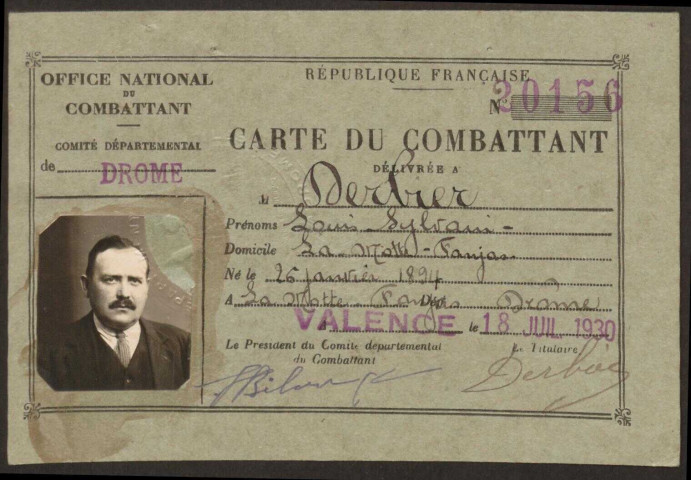 OFFICE NATIONAL
DU
COMBATTANT
COMITÉ DÉPARTEMENTAL
de DROME
RÉPUBLIQUE FRANÇAISE
N° 20156
CARTE DU COMBATTANT
DÉLIVRÉE A
M Derbier
Prénoms Louis Sylvain
Domicile La Motte-Fanjas
Né le 26 janvier 1894
A La Motte-Fanjas Dépt Drôme
A VALENCE le 18 JUIL 1930
Le Président du Comité départemental
du Combattant
Le Titulaire